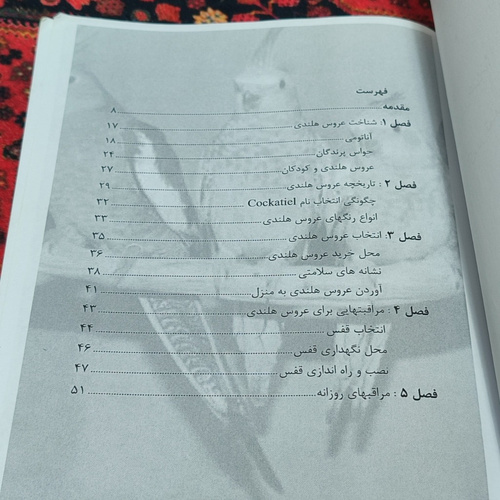 فهرست
مقدمه ........ ۸
فصل ۱: شناخت عروس هلندی ........ ۱۷
آناتومی ........ ۱۸
حواس پرندگان ........ ۲۴
عروس هلندی و کودکان ........ ۲۷
فصل ۲ : تاریخچه عروس هلندی ........ ۲۹
چگونگی انتخاب نام Cockatiel ........ ۳۲
انواع رنگهای عروس هلندی ........ ۳۳
فصل ۳: انتخاب عروس هلندی ........ ۳۵
محل خرید عروس هلندی ........ ۳۶
نشانه های سلامتی ........ ۳۸
آوردن عروس هلندی به منزل ........ ۴۱
فصل ۴ : مراقبتهایی برای عروس هلندی ........ ۴۳
انتخاب قفس ........ ۴۴
محل نگهداری قفس ........ ۴۶
نصب و راه اندازی قفس ........ ۴۷
فصل ۵ : مراقبهای روزانه ........ ۵۱